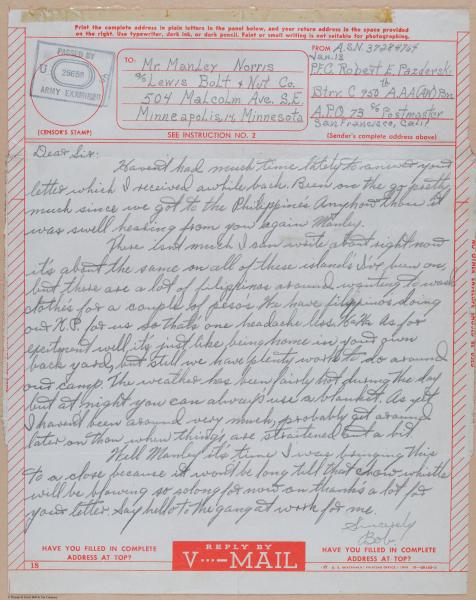 Print the complete address in plain letters in the panel below, and your return address in the space provided
on the right. Use typewriter, dark ink, or dark pencil. Faint or small writing is not suitable for photographing.
PASSED BY
U S
29650
ARMY EXAMINER
(CENSOR'S STAMP)
TO:
Mr. Manley Norris
c/o Lewis Bolt & Nut Co.
504 Malcolm Ave. S.E.
Minneapolis, 14, Minnesota
SEE INSTRUCTION NO. 2
FROM A.S.N. 37284764
Jan. 18
Pfc. Robert E. Pazderski
Btry. C 950th AAA(AW) Bn
A.P.O. 73 c/o Postmaster
San Francisco, Calif
(Sender's complete address above)
Dear Sir:
Havent had much time lately to answer your
letter which I received awhile back. Been one the go pretty
much since we got to the Philippines Anyhow thou it
was swell hearing from you again Manley.
There isnt much I can write about right now
it's about the same on all of these island's I've been one,
but there are a lot of filipinos around wanting to wash
clothes for a couple of peso's. We have filippinos doing
our K.P. for us so that's one headache less. Ha Ha As for
excitment well its just like being home in your own
back yard, but still we have plenty work to do around
our camp. The weather has been fairly hot during the day
but at night you can always use a blanket. As yet
I havent been around very much, probably get around
later on than when things are straitened out a bit.
Well Manley its time I was bringing this
to a close because it wont be long till that chow whistle
will be blowing so solong for now an thank's a lot for
your letter. Say hello to the gang at work for me.
Sincerely
Bob
HAVE YOU FILLED IN COMPLETE
ADDRESS AT TOP?
REPLY BY
V···—MAIL
HAVE YOU FILLED IN COMPLETE
ADDRESS AT TOP?
18